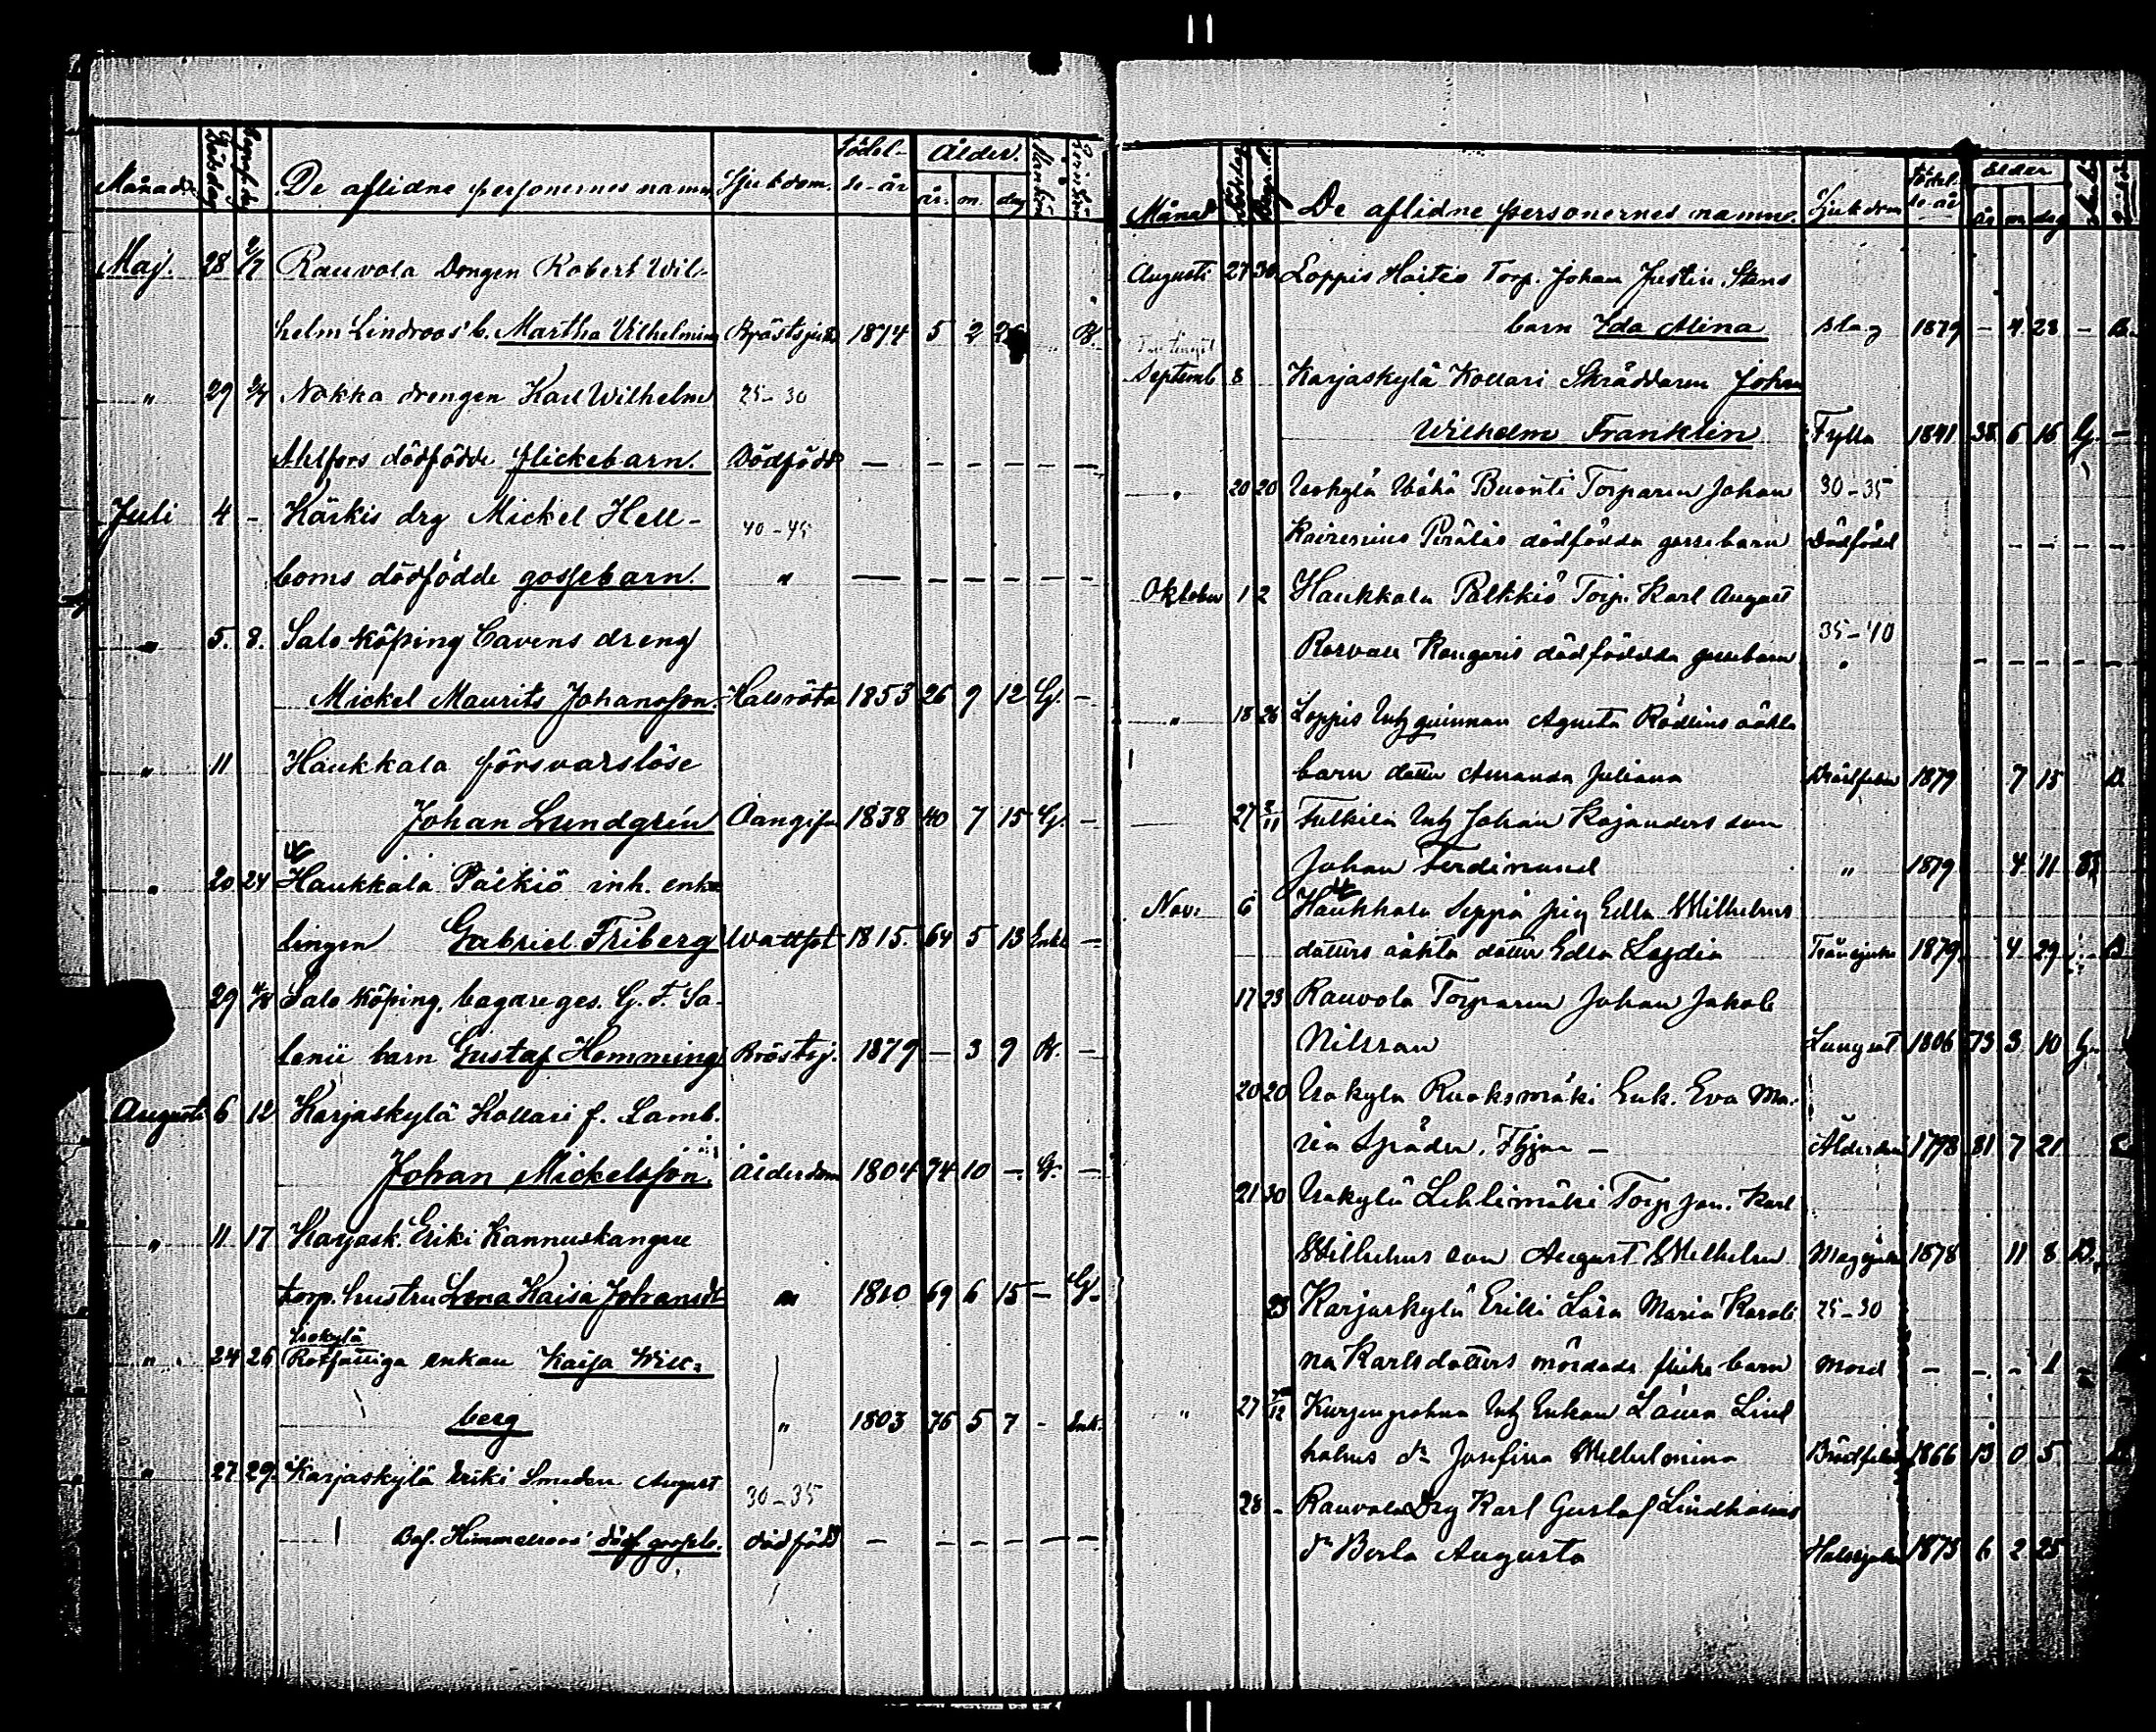 Månad. Dödsdag Begrafn.dag De aflidne personernes namn. Sjukdom. Födel- Ålder. Mankön Qvinkön
se-år år. m. dag
Maj. 28 2/7 Rauvola Drengen Robert Wil-
helm Lindroos' b. Martha Vilhelmina Bröstsjuk 1874 5 2 B.
" 29 Nakka drengen Karl Wilhelm 25-30
Ahlfors dödfödde flickebarn. Dödfödd — — — — — —
Juli 4 - Kärkis drg Mickel Hell- 40-45
boms dödfödde gossebarn. " — — — — — —
" 5. 8. Salo köping Cavens dreng
Mickel Maurits Johansson. Halsröta 1853 26 9 12 G. -
" 11 Haukkala försvarslöse
Johan Lundgrén 1838 40 7 15 G. -
" 20 24 Haukkala Pälkiö inh. enk-
lingen Gabriel Friberg Wattsot 1815. 64 5 13 Enkl -
29 4/8 Salo köping, bagareges. G. F. Sa-
lenii barn Gustaf Hemming Bröstsj. 1879 — 3 9 B. -
Augusti 6 12 Karjaskylä Kollari f. Lamb.
Johan Mickelsson. Ålderdom 1804 74 10 - G. -
" 11 17 Karjask. Eriki Kannuskangas
torp. hustru Lena Kaisa Johansdr " 1810 69 6 15 — G.
Isokylä
" 24 26 Rotfattiga enkan Kaisa Wik-
berg " 1803 76 5 7 - Enk.
" 27 29. Karjaskylä Eriki Smeden August 30-35
Himmelroos' dödf. gosseb. dödfödd — — — — — —
Månad Dödsdag Begr.d. De aflidne personernes namne. Sjukdom Födel- Ålder
se-år år m dag
Augusti 27 30 Loppis Haitio Torp. Johan Justin Stens
barn Ida Alina Slag 1879 - 4 28 - B.
Septemb. 8 Karjaskylä Kollari Skräddaren Johan
Wilhelm Franklin Fylla 1841 38 6 16 G. -
" 20 20 Isokylä Wähä Buonti Torparen Johan 30-35
Pärälas dödfödda gossebarn Dödfödd — — — — —
Oktober 1 2 Haukkala Pälkkiö Torp. Karl August
35-40
Kangaris dödfödda gossebarn " — — — — —
" 18 26 Loppis Inh quinnan Agusta Rödlins oäkta
barn dotter Amanda Juliana 1879 7 15 B.
27 2/11 Tulkila Inh Johan Kajanders son
Johan Ferdinand " 1879 4 11 B.
Nov. 6 Haukkala Seppä pig Edla Wilhelms
dotters oäkta dotter Edla Lydia 1879 4 29 B
17 23 Rauvola Torparen Johan Jakob
Nilsson Lungsot 1806 73 3 10 G.
20 20 Isokylä Ruoksmäki Enk. Eva Ma-
ria — Ålderdom 1798 81 7 21 E
21 30 Isokylä Lehtimäki Torp jon. Karl
Wilhelms son August Wilhelm Magsjuka 1878 11 8 B.
23 Karjaskylä Eriki Lösa Maria Karoli 25-30
na Karlsdotters mördade flicke barn Mord — — — 1
" 27 7/12 Inh Enkan Laura Lind
holms dr Josefina Wilhelmina 1866 13 0 5 B.
28 - Rauvola Drg Karl Gustaf Lindholms
dr Berta Augusta Halssjuka 1873 6 2 25